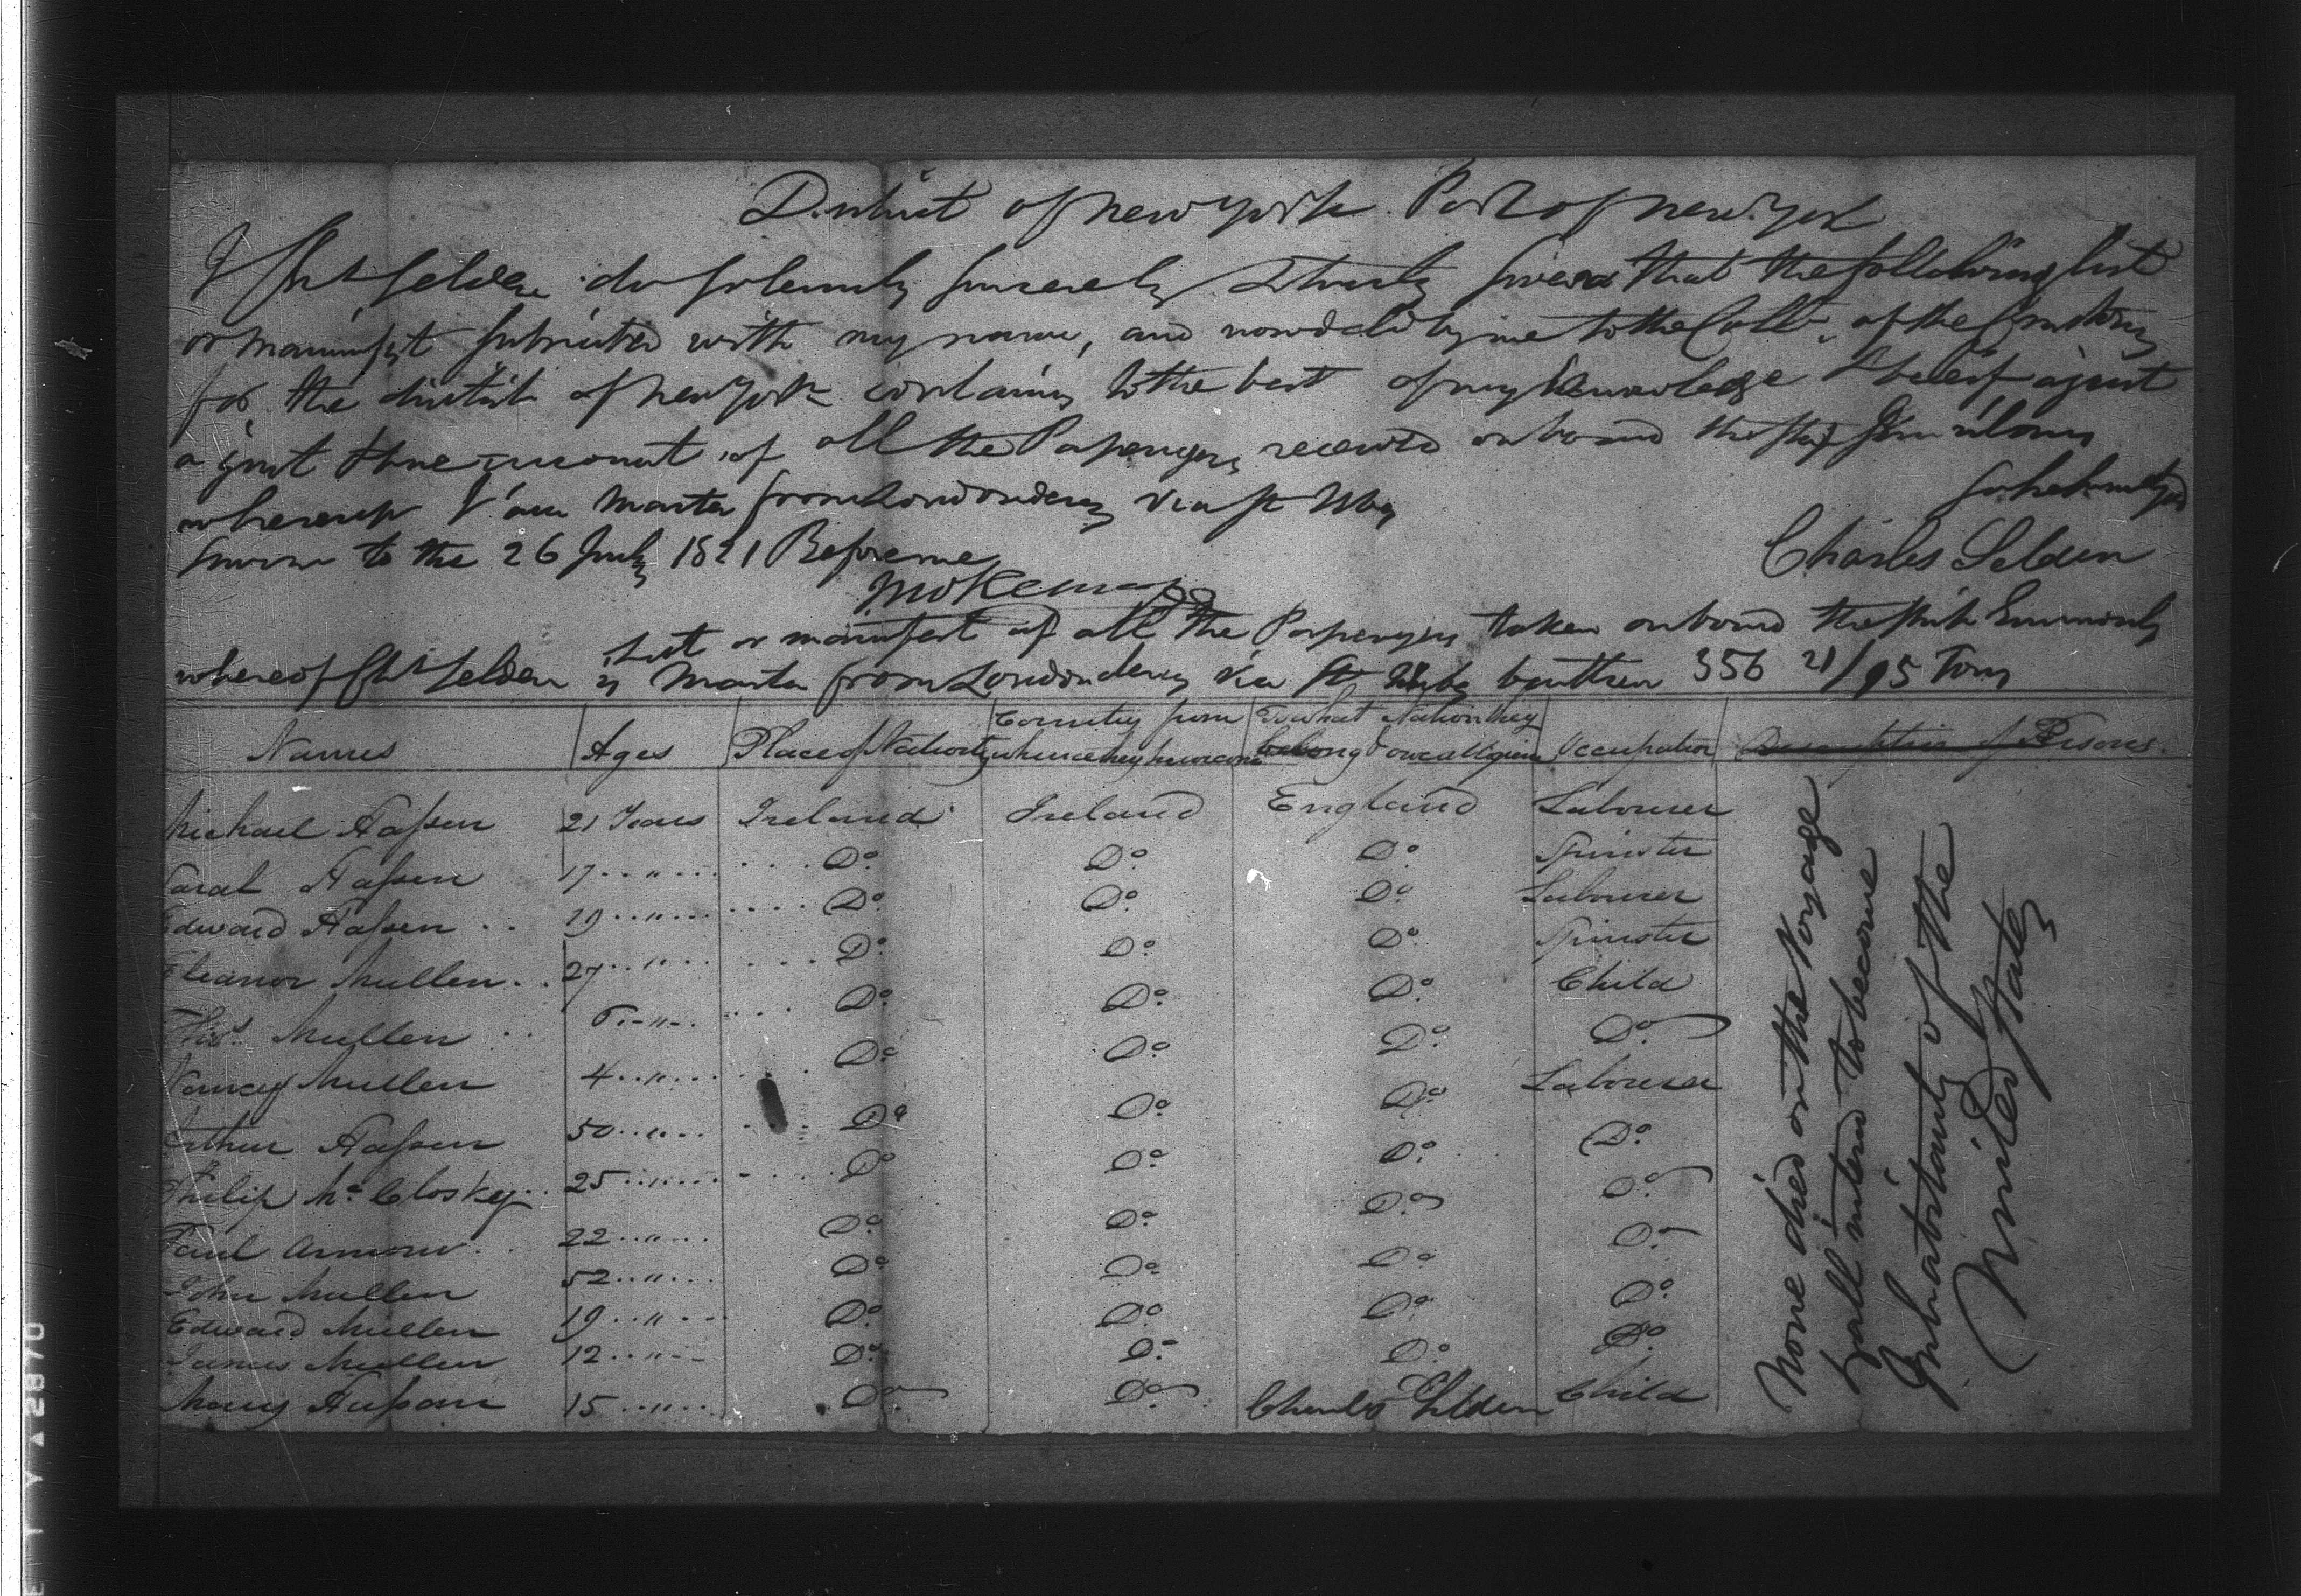 District of New York Port of New York
I Chs Selden do solemnly sincerely & truly swear that the following list
or manifest subscribed with my name, and now deld by me to the Collr of the Customs
for the district of New York contains to the best of my knowledge & beleif a just
a just & true account of all the Passengers received on board the Ship
whereof I am Master from Londonderry via St Ubes
Sworn to the 26 July 1821 Before me
So help me God
Charles Selden
List or manifest of all the Passengers taken on board the Ship
whereof Chs Selden is Master from Londonderry via St Ubes burthen 356 21/95 Tons
Names | Ages | Place of Nativity | Country from whence they have come | To what Nation they belong & owe allegiance | Occupation | Description of Persons
Michael Hassen 21 Years Ireland Ireland England Labourer
Sarah Hassen 17 " Do Do Do Spinster
Edward Hassen 19 " Do Do Do Labourer
Eleanor Mullen 27 " Do Do Do Spinster
Thos Mullen 6 " Do Do Do Child
Nancy Mullen 4 " Do Do Do Do
Arthur Hassen 50 " Do Do Do Labourer
Philip Mc Closkey 25 " Do Do Do Do
Paul Armour 22 " Do Do Do Do
John Mullen 52 " Do Do Do Do
Edward Mullen 19 " Do Do Do Do
James Mullen 12 " Do Do Do Do
Mary Hassan 15 " Do Do Child
Charles Selden
None died on the Voyage
& all intend to become
Inhabitants of the
United States